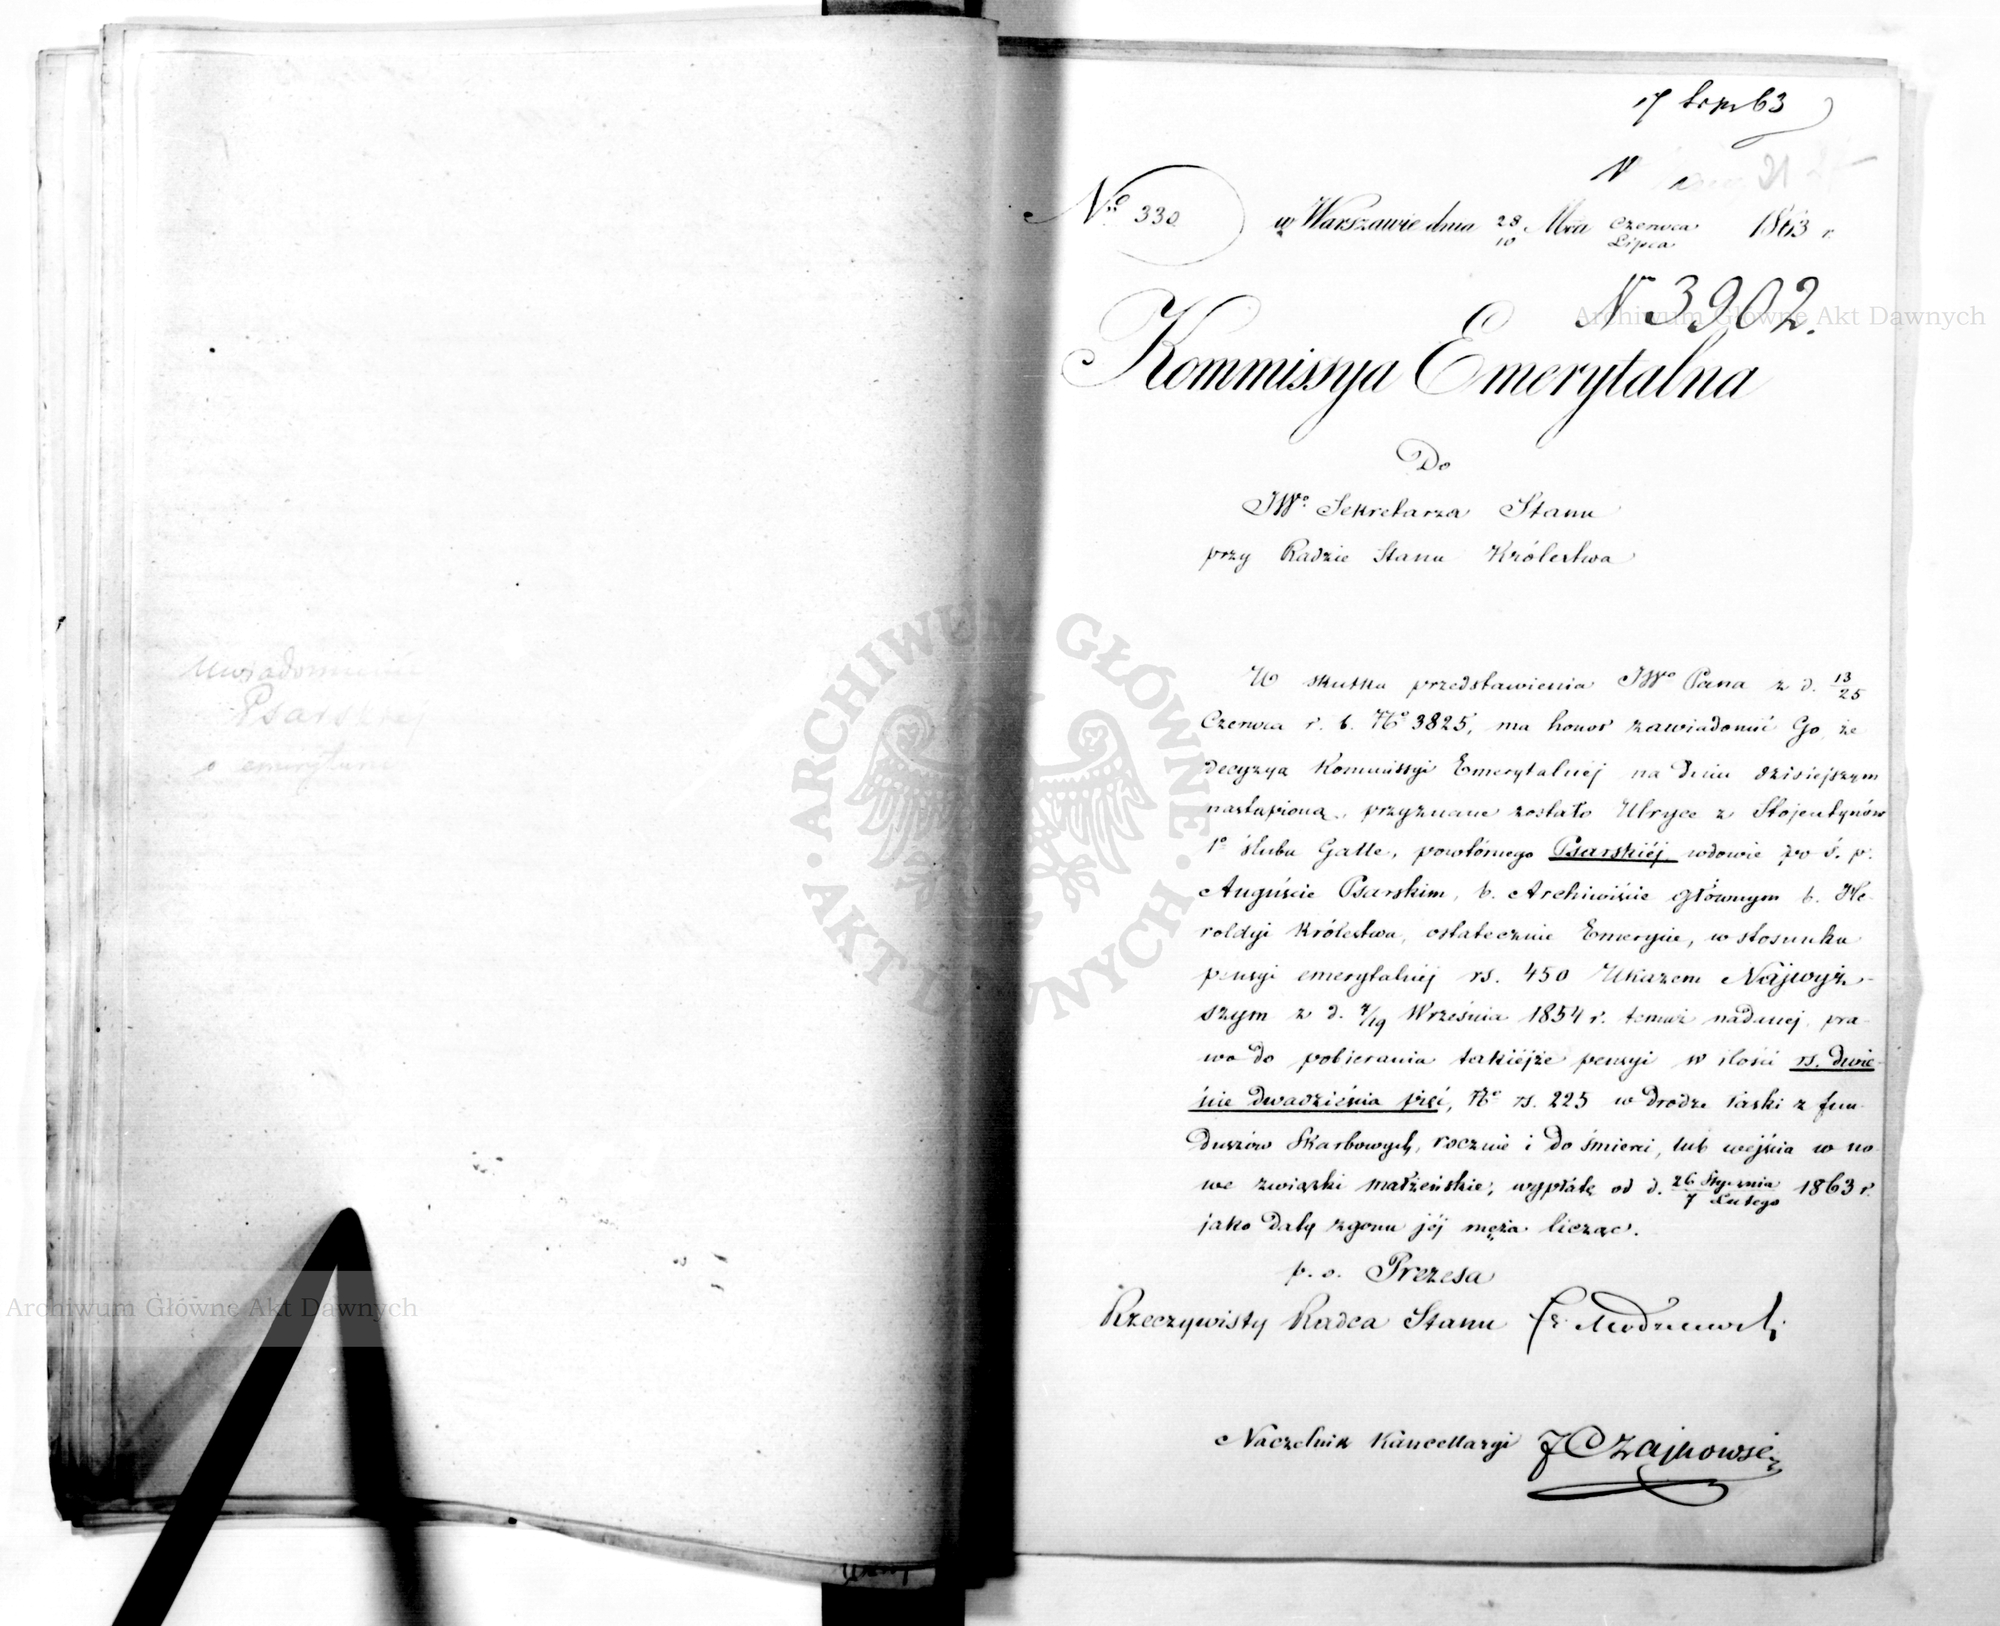 Uwiadomienie
Psarskiej
o emeryturze
17 Lipr 63
N
No 330
w Warszawie dnia 28/10 Mca Czerwca/Lipca 1863 r.
N 3902.
Kommissya Emerytalna
Do
JWo Sekretarza Stanu
przy Radzie Stanu Królestwa
W skutku przedstawienia JWo Pana z d. 13/25
Czerwca r. b. No 3825, ma honor zawiadomić Go, że
decyzyą Kommissyi Emerytalnéj na dniu dzisiejszym
nastąpioną, przyznane zostało Ulryce z Stojentynów
1o ślubu Gatte, powtórnego Psarskiéj wdowie po ś. p.
Auguście Psarskim, b. Archiwiście Głównym b. He-
roldyi Królestwa, ostatecznie Emerycie, w stosunku
pensyi emerytalnéj rs. 450 Ukazem Najwyż-
szym z d. 7/19 Września 1854 r. temuż nadanej, pra-
wo do pobierania takiéjże pensyi w ilości rs. dwie-
ście dwadzieścia pięć, No rs. 225 w drodze łaski z fun-
duszów Skarbowych, rocznie i do śmierci, lub wejścia w no-
we związki małżeńskie, wypłatę od d. 26 Stycznia/7 Lutego 1863 r.
jako daty zgonu jéj męża licząc.
p. o. Prezesa
Rzeczywisty Radca Stanu
Naczelnik Kancellaryi J Czajkowski
Archiwum Główne Akt Dawnych
Archiwum Główne Akt Dawnych
ARCHIWUM GŁÓWNE AKT DAWNYCH